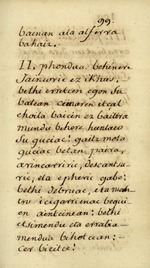 99.
bainan ala alferra
bahaiz.
II, phondua behinere
Jainuoric ez ikhus,
bethi erratcen egon su
batean cimaren itçal
choila baicin ez baitra
mundu behere huntaco
su guciac: gaitz mota
guciac betan, paira,
arincarriric, descansu-
ric, eta epheric gabe:
bethi debruac, eta
içigarrienac begui-
en aintcinean: bethi
etsimendu eta errabia-
mendua bihotcean:
cer bicitce!